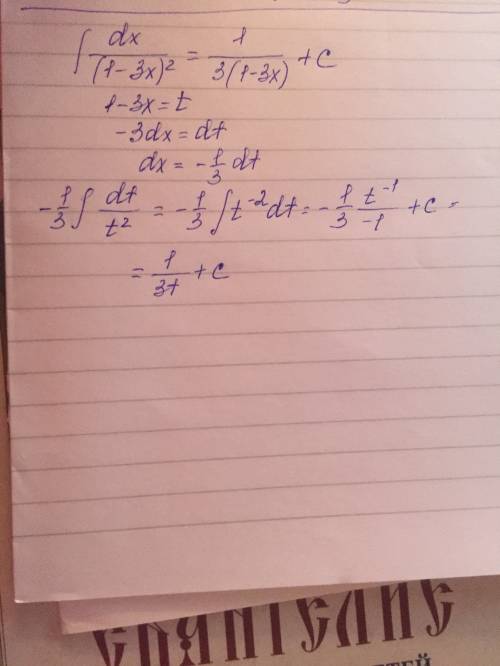 ∫ dx/(1-3x)² = 1/3(1-3x) + C
1-3x=t
-3dx=dt
dx = -1/3 dt
-1/3 ∫ dt/t² = -1/3 ∫ t⁻² dt = -1/3 t⁻¹/-1 + C =
= 1/3t + C